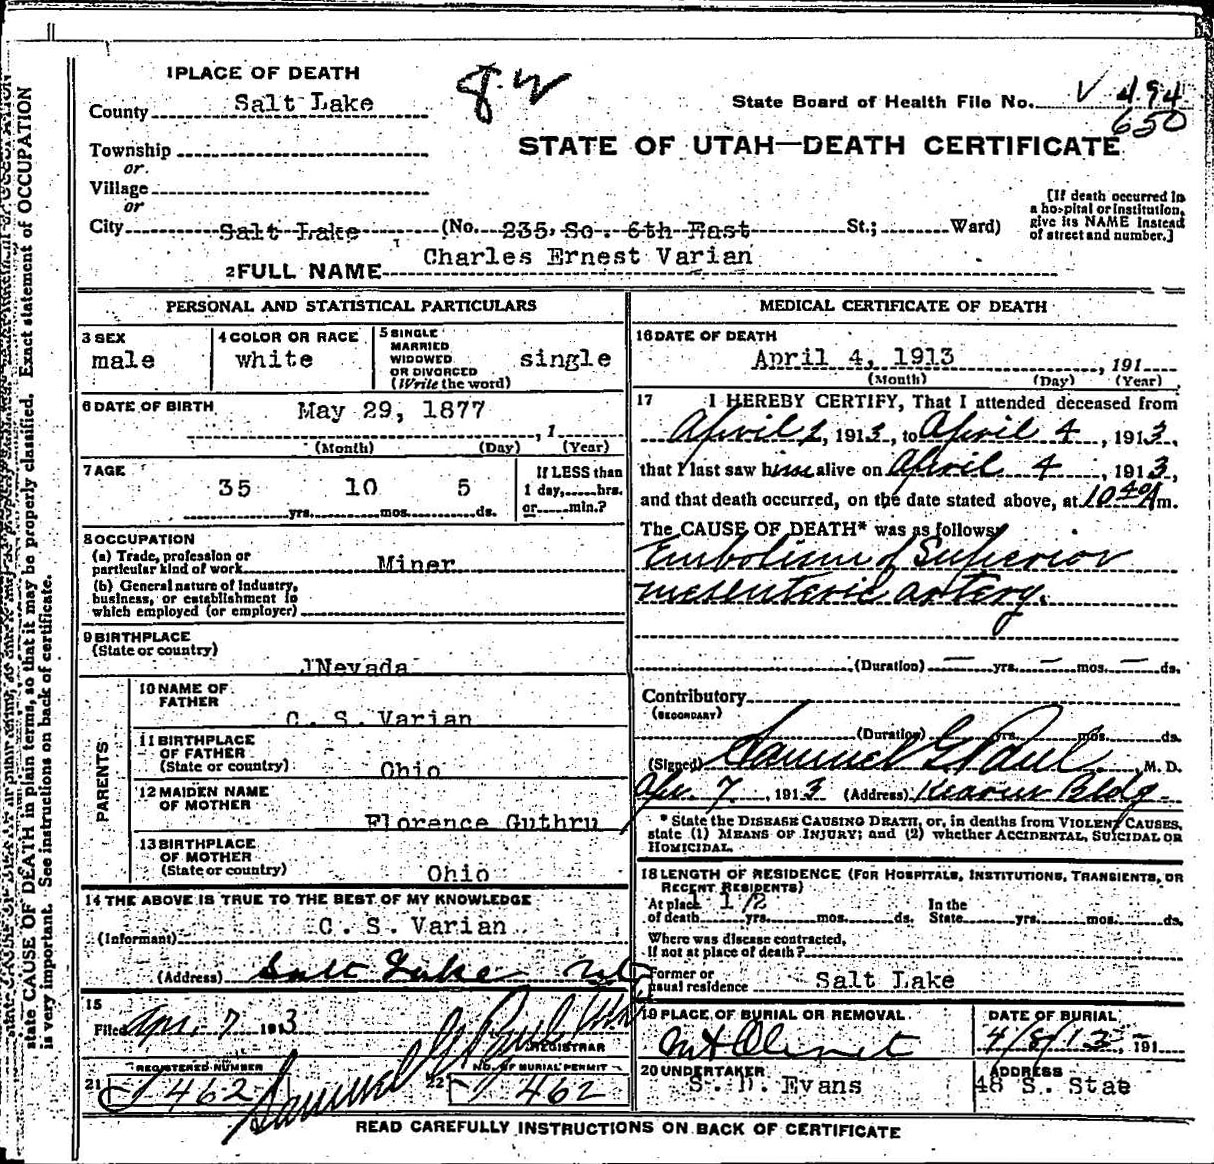 1 PLACE OF DEATH
County Salt Lake
g.w
State Board of Health File No. 494
650
STATE OF UTAH—DEATH CERTIFICATE
Township
or
Village
or
City Salt Lake (No. 235 So. 6th East St.; Ward)
[If death occurred in
a hospital or institution,
give its NAME instead
of street and number.]
2 FULL NAME Charles Ernest Varian
PERSONAL AND STATISTICAL PARTICULARS
3 SEX
male
4 COLOR OR RACE
white
5 SINGLE
MARRIED
WIDOWED
OR DIVORCED
(Write the word)
single
6 DATE OF BIRTH May 29, 1877
, 1
(Month) (Day) (Year)
7 AGE
35 10 5
yrs. mos. ds.
If LESS than
1 day, hrs.
or min.?
8 OCCUPATION
(a) Trade, profession or
particular kind of work Miner
(b) General nature of industry,
business, or establishment in
which employed (or employer)
9 BIRTHPLACE
(State or country)
Nevada
PARENTS
10 NAME OF
FATHER
C. S. Varian
11 BIRTHPLACE
OF FATHER
(State or country)
Ohio
12 MAIDEN NAME
OF MOTHER
Florence Guthru
13 BIRTHPLACE
OF MOTHER
(State or country)
Ohio
14 THE ABOVE IS TRUE TO THE BEST OF MY KNOWLEDGE
(Informant) C. S. Varian
(Address) Salt Lake Ut
15
Filed Apr. 7 1913 Samuel G Paul
REGISTRAR
REGISTERED NUMBER
21 462
NO. OF BURIAL PERMIT
22 462
MEDICAL CERTIFICATE OF DEATH
16 DATE OF DEATH
April 4, 1913 , 191
(Month) (Day) (Year)
17 I HEREBY CERTIFY, That I attended deceased from
April 2, 1913, to April 4, 1913,
that I last saw him alive on April 4, 1913,
and that death occurred, on the date stated above, at 10 40 A m.
The CAUSE OF DEATH* was as follows:
Embolism of Superior
mesenteric artery.
(Duration) — yrs. — mos. — ds.
Contributory
(SECONDARY)
(Duration) yrs. mos. ds.
(Signed) Samuel G Paul, M. D.
Apr. 7, 1913 (Address) Kearns Bldg.
* State the DISEASE CAUSING DEATH, or, in deaths from VIOLENT CAUSES,
state (1) MEANS OF INJURY; and (2) whether ACCIDENTAL, SUICIDAL OR
HOMICIDAL.
18 LENGTH OF RESIDENCE (FOR HOSPITALS, INSTITUTIONS, TRANSIENTS, OR
RECENT RESIDENTS)
At place 1 1/2 In the
of death yrs. mos. ds. State yrs. mos. ds.
Where was disease contracted,
If not at place of death?
Former or
usual residence Salt Lake
19 PLACE OF BURIAL OR REMOVAL
Mt Olivet
DATE OF BURIAL
4/8/13, 191
20 UNDERTAKER
S. D. Evans
ADDRESS
48 S. Stae
READ CAREFULLY INSTRUCTIONS ON BACK OF CERTIFICATE
state CAUSE OF DEATH in plain terms, so that it may be properly classified. Exact statement of OCCUPATION
is very important. See instructions on back of certificate.